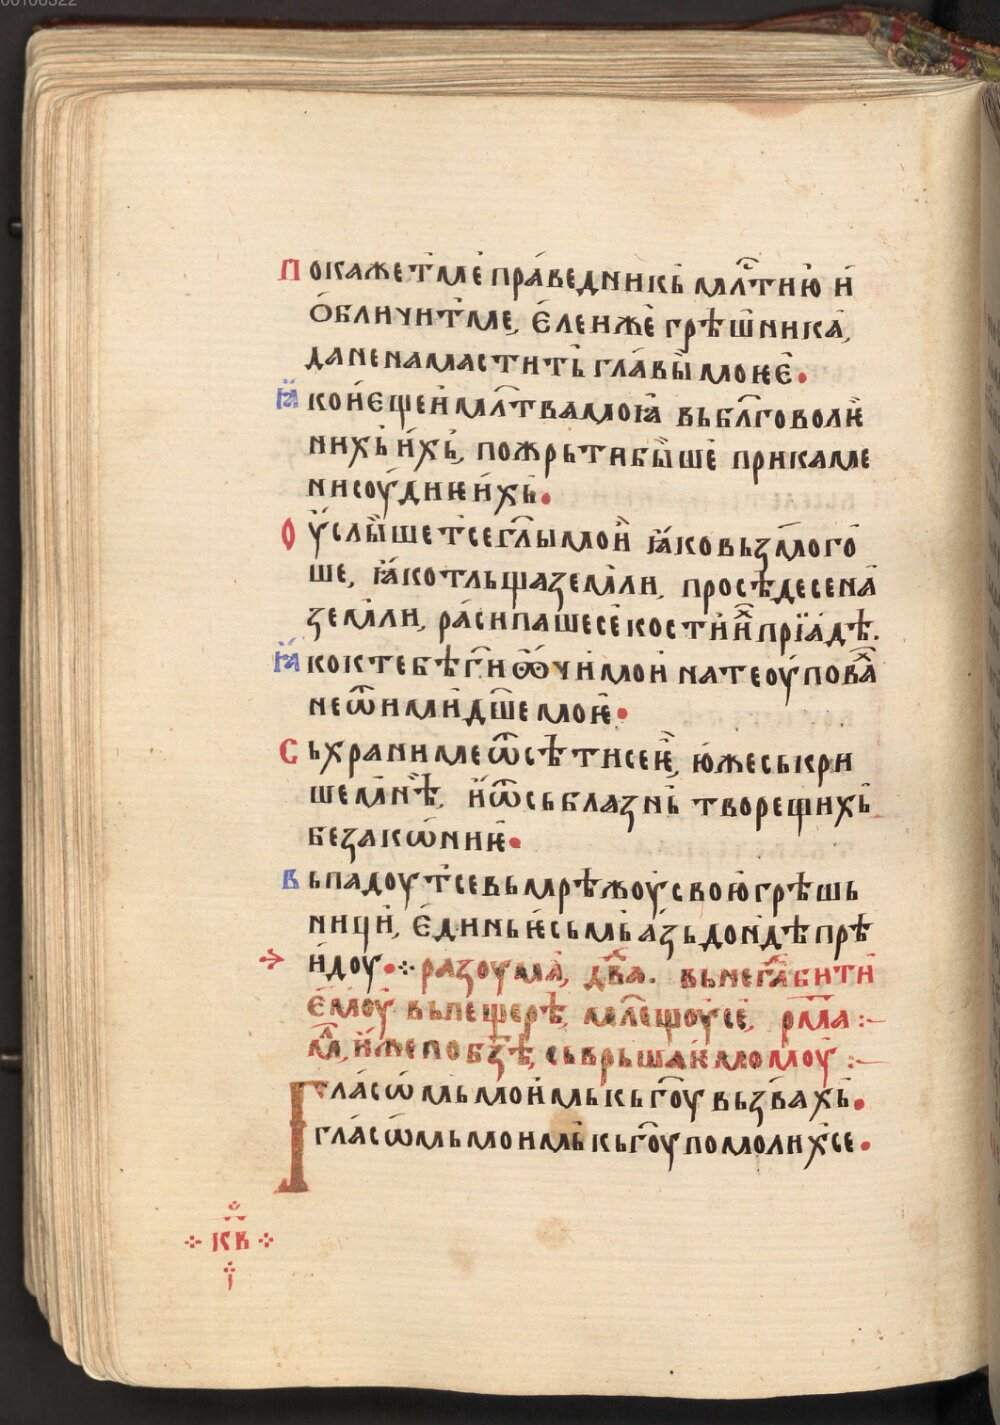 00106322
Покажет' ме праведникь мл҇тию и
обличит' ме, єлеи же грѣш'ника,
да не намастить главы моѥє•
Ꙗко и єще и мл҇тва моꙗ вь бл҃говолѥ
нихь ихь, пожрьти быше при каме
ни соудиѥ ихь•
Оуслышет' се гл҃ы мои ꙗко вьзмого
ше, ꙗко тльща земли, просѣде се на
земли, расипаше се кости ихⷯ при адѣ.
Ꙗко к тебѣ г҃и ѿчи мои на те оуповаⷯ
не ѿими дш҃е моѥ•
Сьхрани ме ѿ сѣти сеѥ, юже ськри
ше мнѣ, и ѿ сьблазнь творещихь
безакѡниѥ•
Вьпадоут' се вь мрѣжоу свою грѣшь
ници, єдинь ѥсьмь азь дондѣ прѣ
идоу•⁘ разоума, двⷣа. вьнегⷣа бити
ємоу вь пещерѣ, молещоу се, рма :–
ⷫлⷨ, иже по бз҃ѣ, сьврьшаѥмомоу :–
Гласѡмь моимь кь г҃оу вьзвахь•
гласѡмь моимь кь г҃оу помолих' се•
⁘ кв ⁘